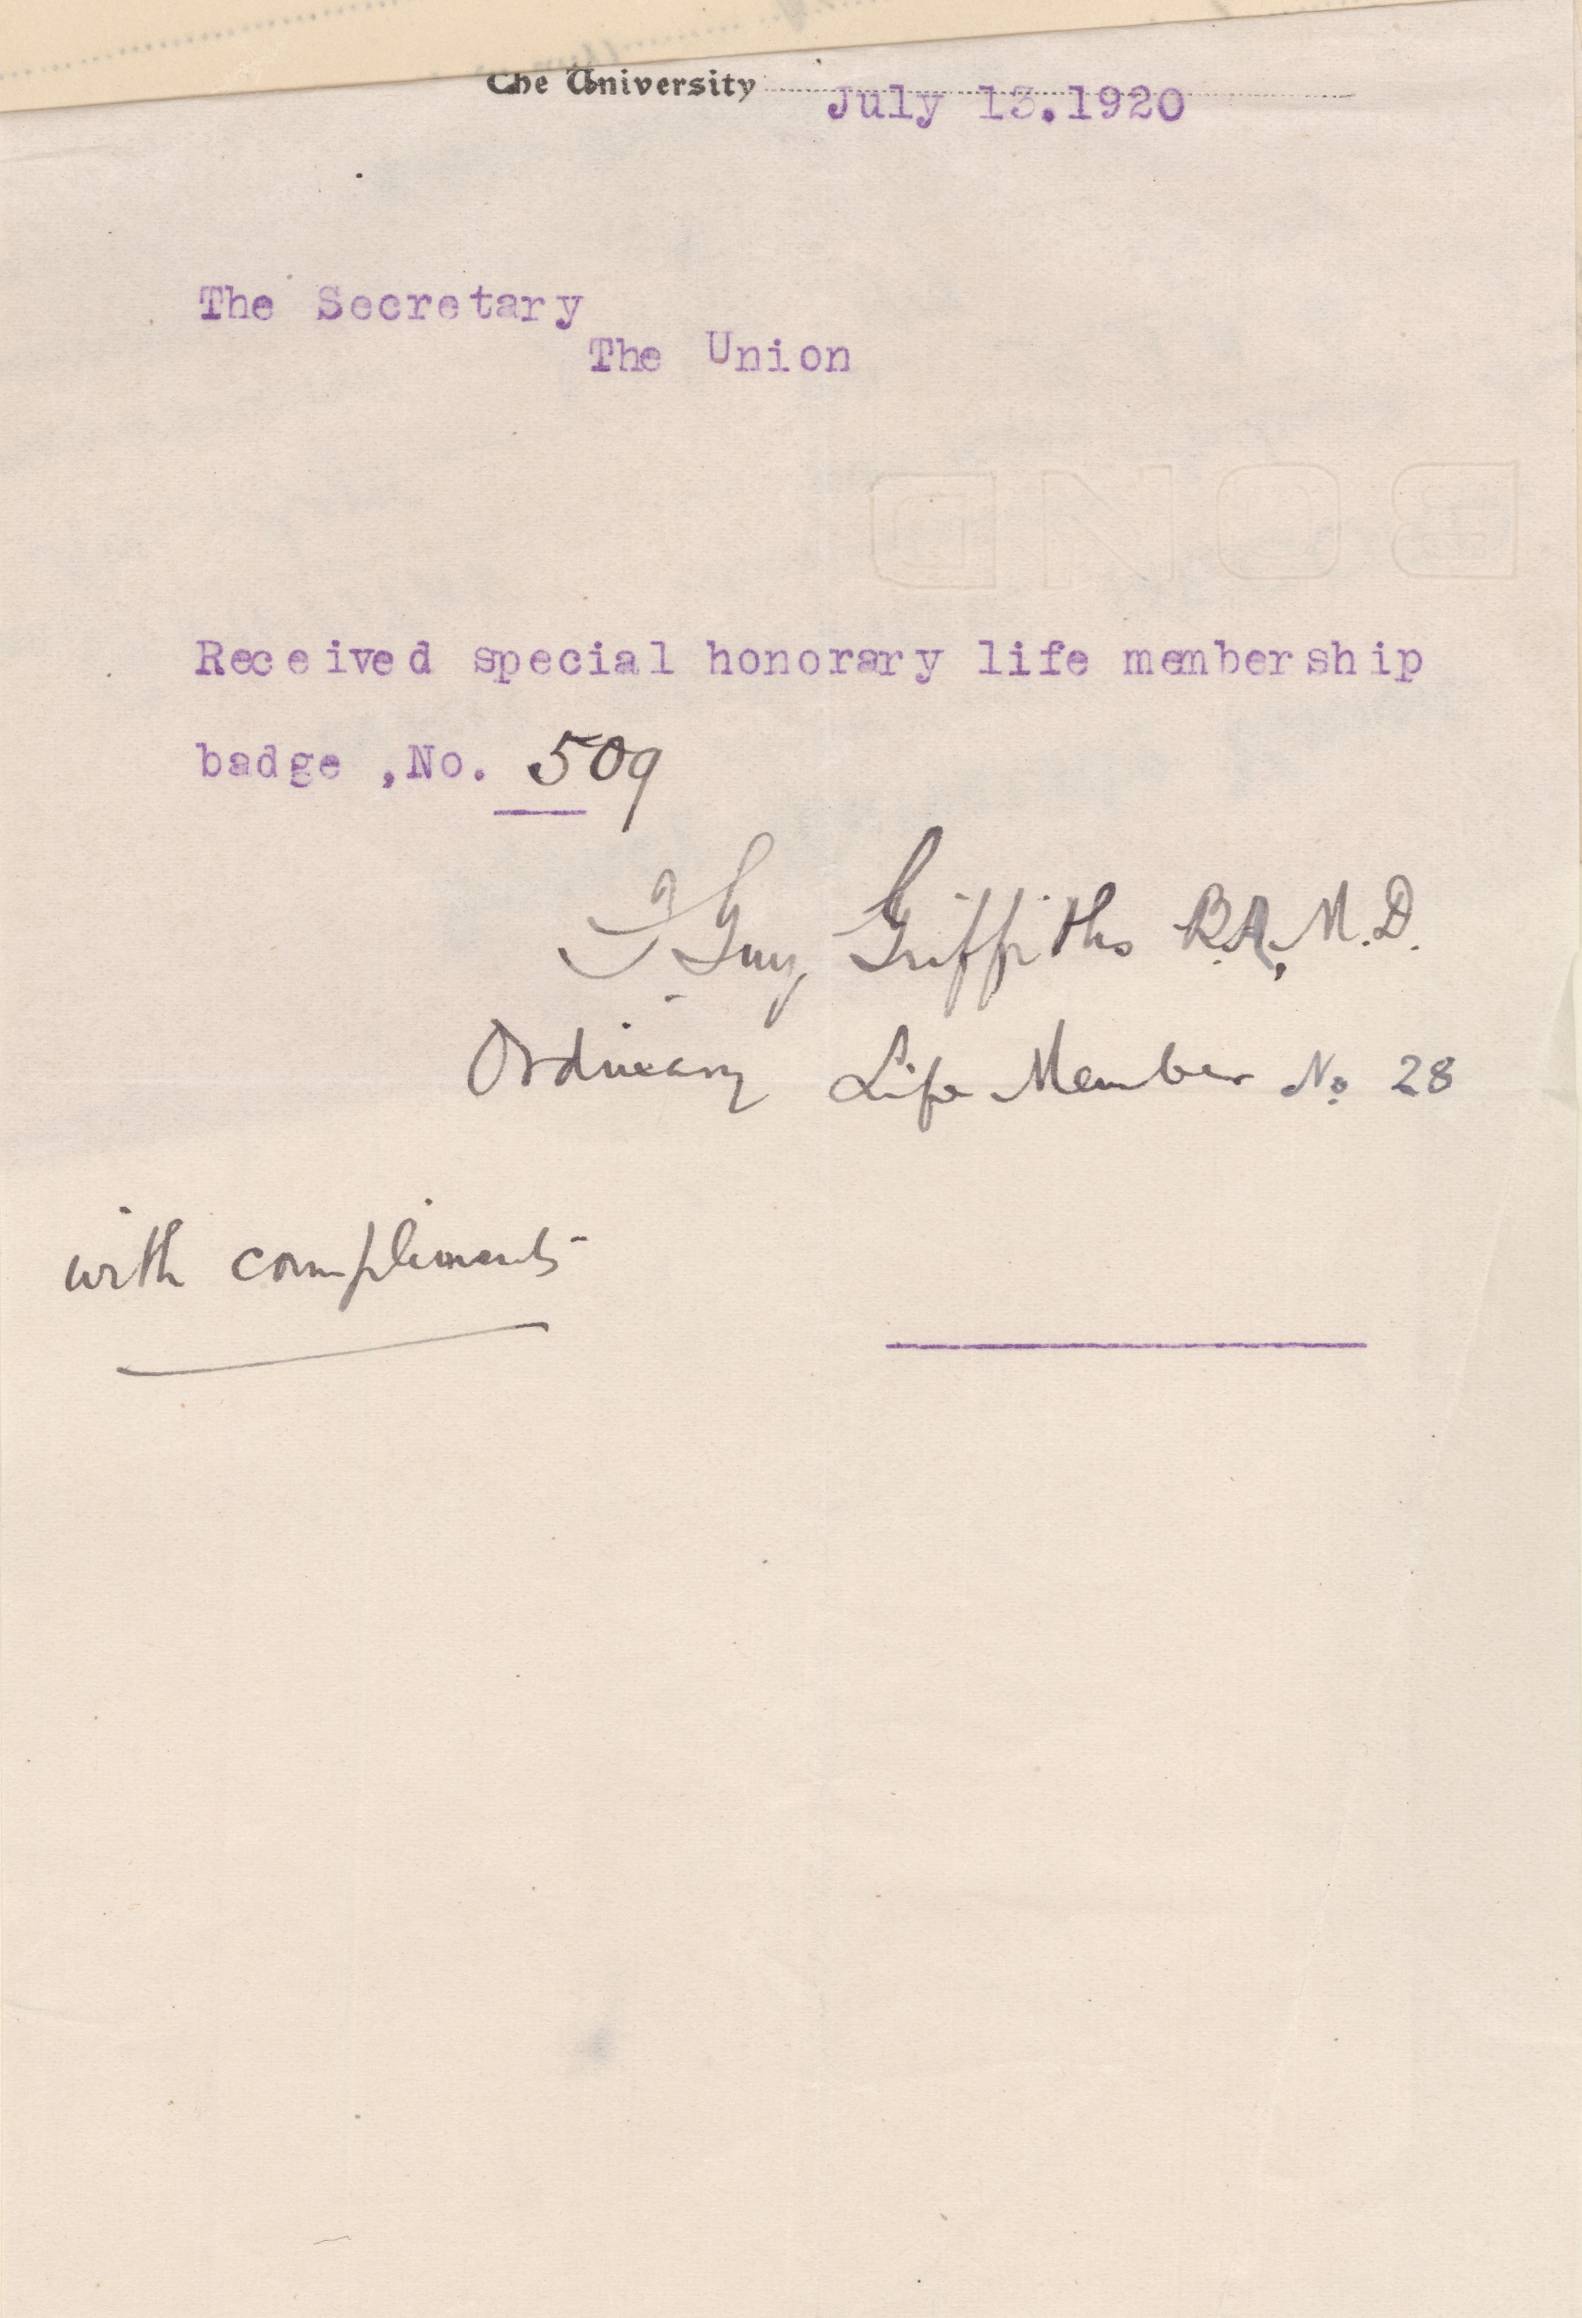 The University July 13.1920
The Secretary
The Union
BOND
Received special honorary life membership
badge ,No. 509
F Guy Griffiths B.A., M.D.
Ordinary Life Member No 28
with compliments